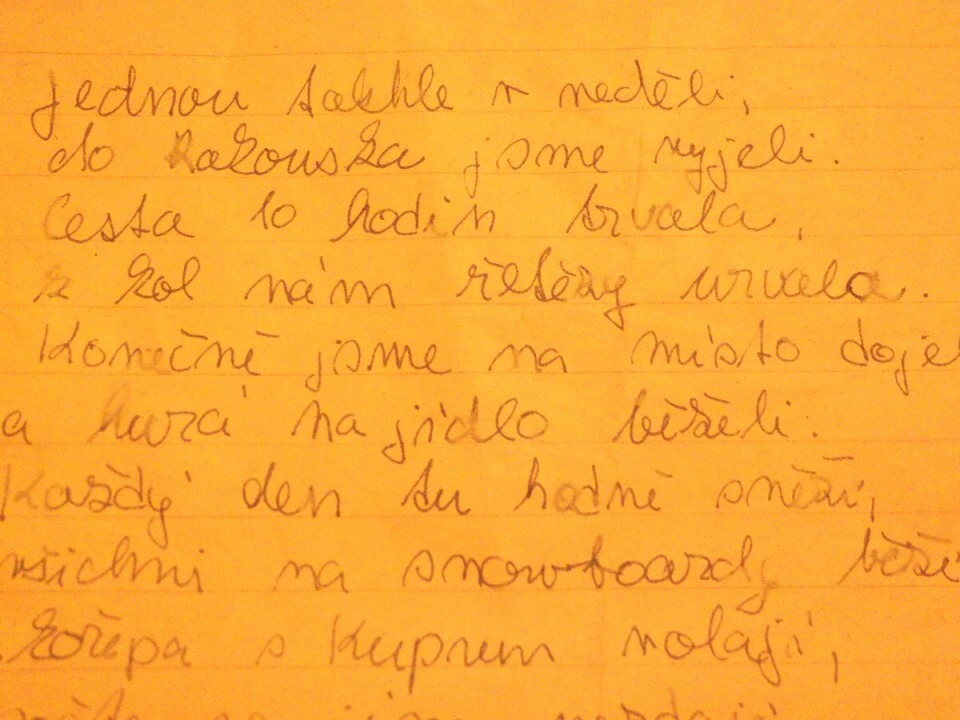 Jednou takhle v neděli,
do Rakouska jsme vyjeli.
Cesta 10 hodin trvala,
z kol nám řetězy urvala.
Konečně jsme na místo doje
a hurá na jídlo běželi.
Každý den tu hodně sněží,
všichni na snowboardy běží
Kořepa s Kuprem volají,